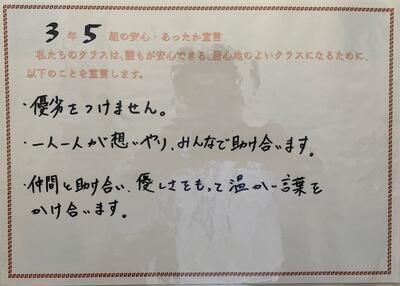 3年5組の安心・あったか宣言
私たちのクラスは、誰もが安心できる、居心地のよいクラスになるために、
以下のことを宣言します。
・優劣をつけません。
・一人一人が思いやり、みんなで助け合います。
・仲間と助け合い、優しさをもって温かい言葉を
かけ合います。